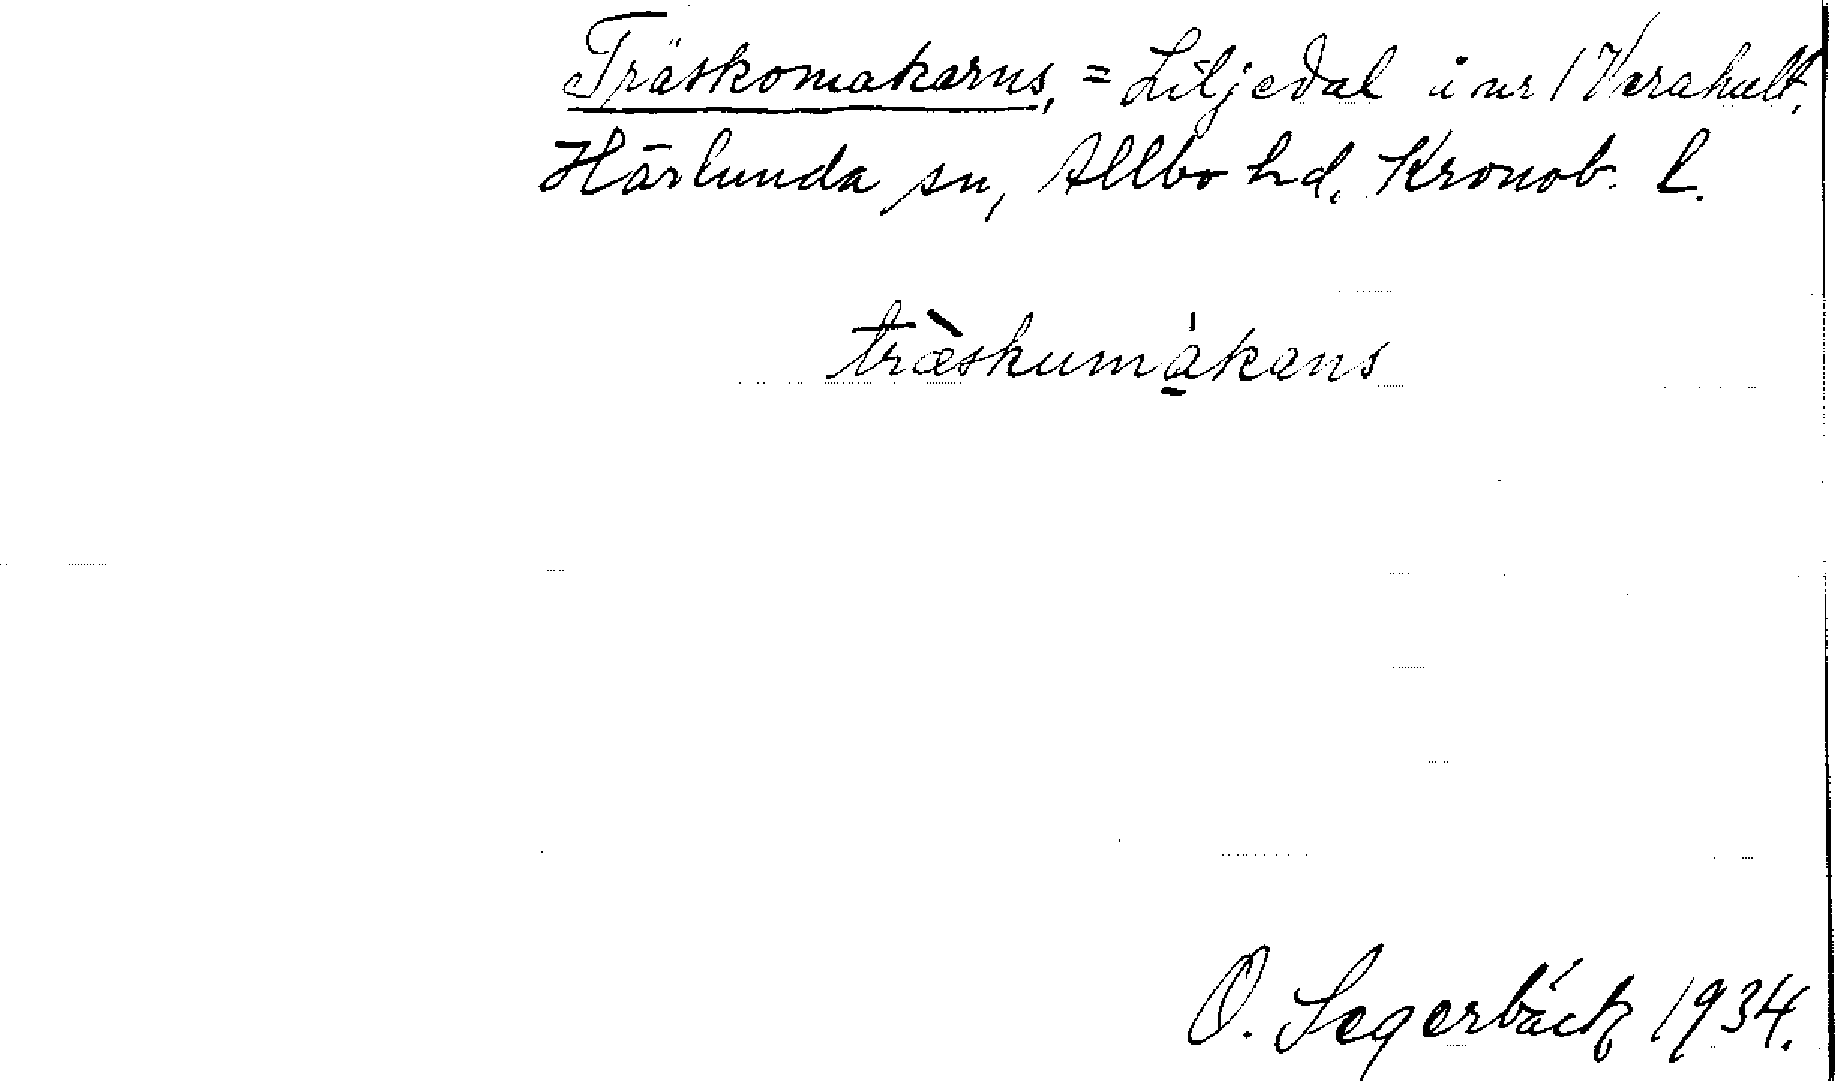 Träskomakarns, = Liljedal i nr 1 Verahult,
Härlunda sn, Allbo hd, Kronob. l.
træ̀skumàkans
O. Segerbäck 1934.